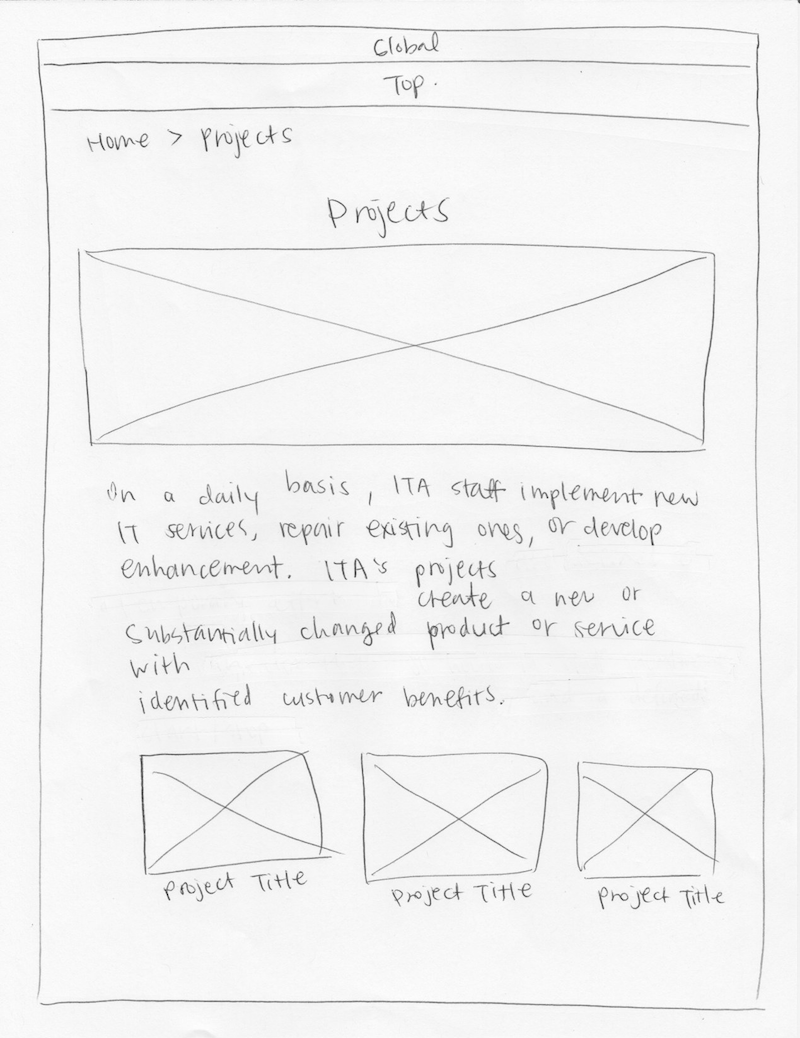 Global
Top.
Home > Projects
Projects
On a daily basis, ITA staff implement new
IT services, repair existing ones, or develop
enhancement. ITA's projects
create a new or
substantially changed product or service
with
identified customer benefits.
Project Title
Project Title
Project Title